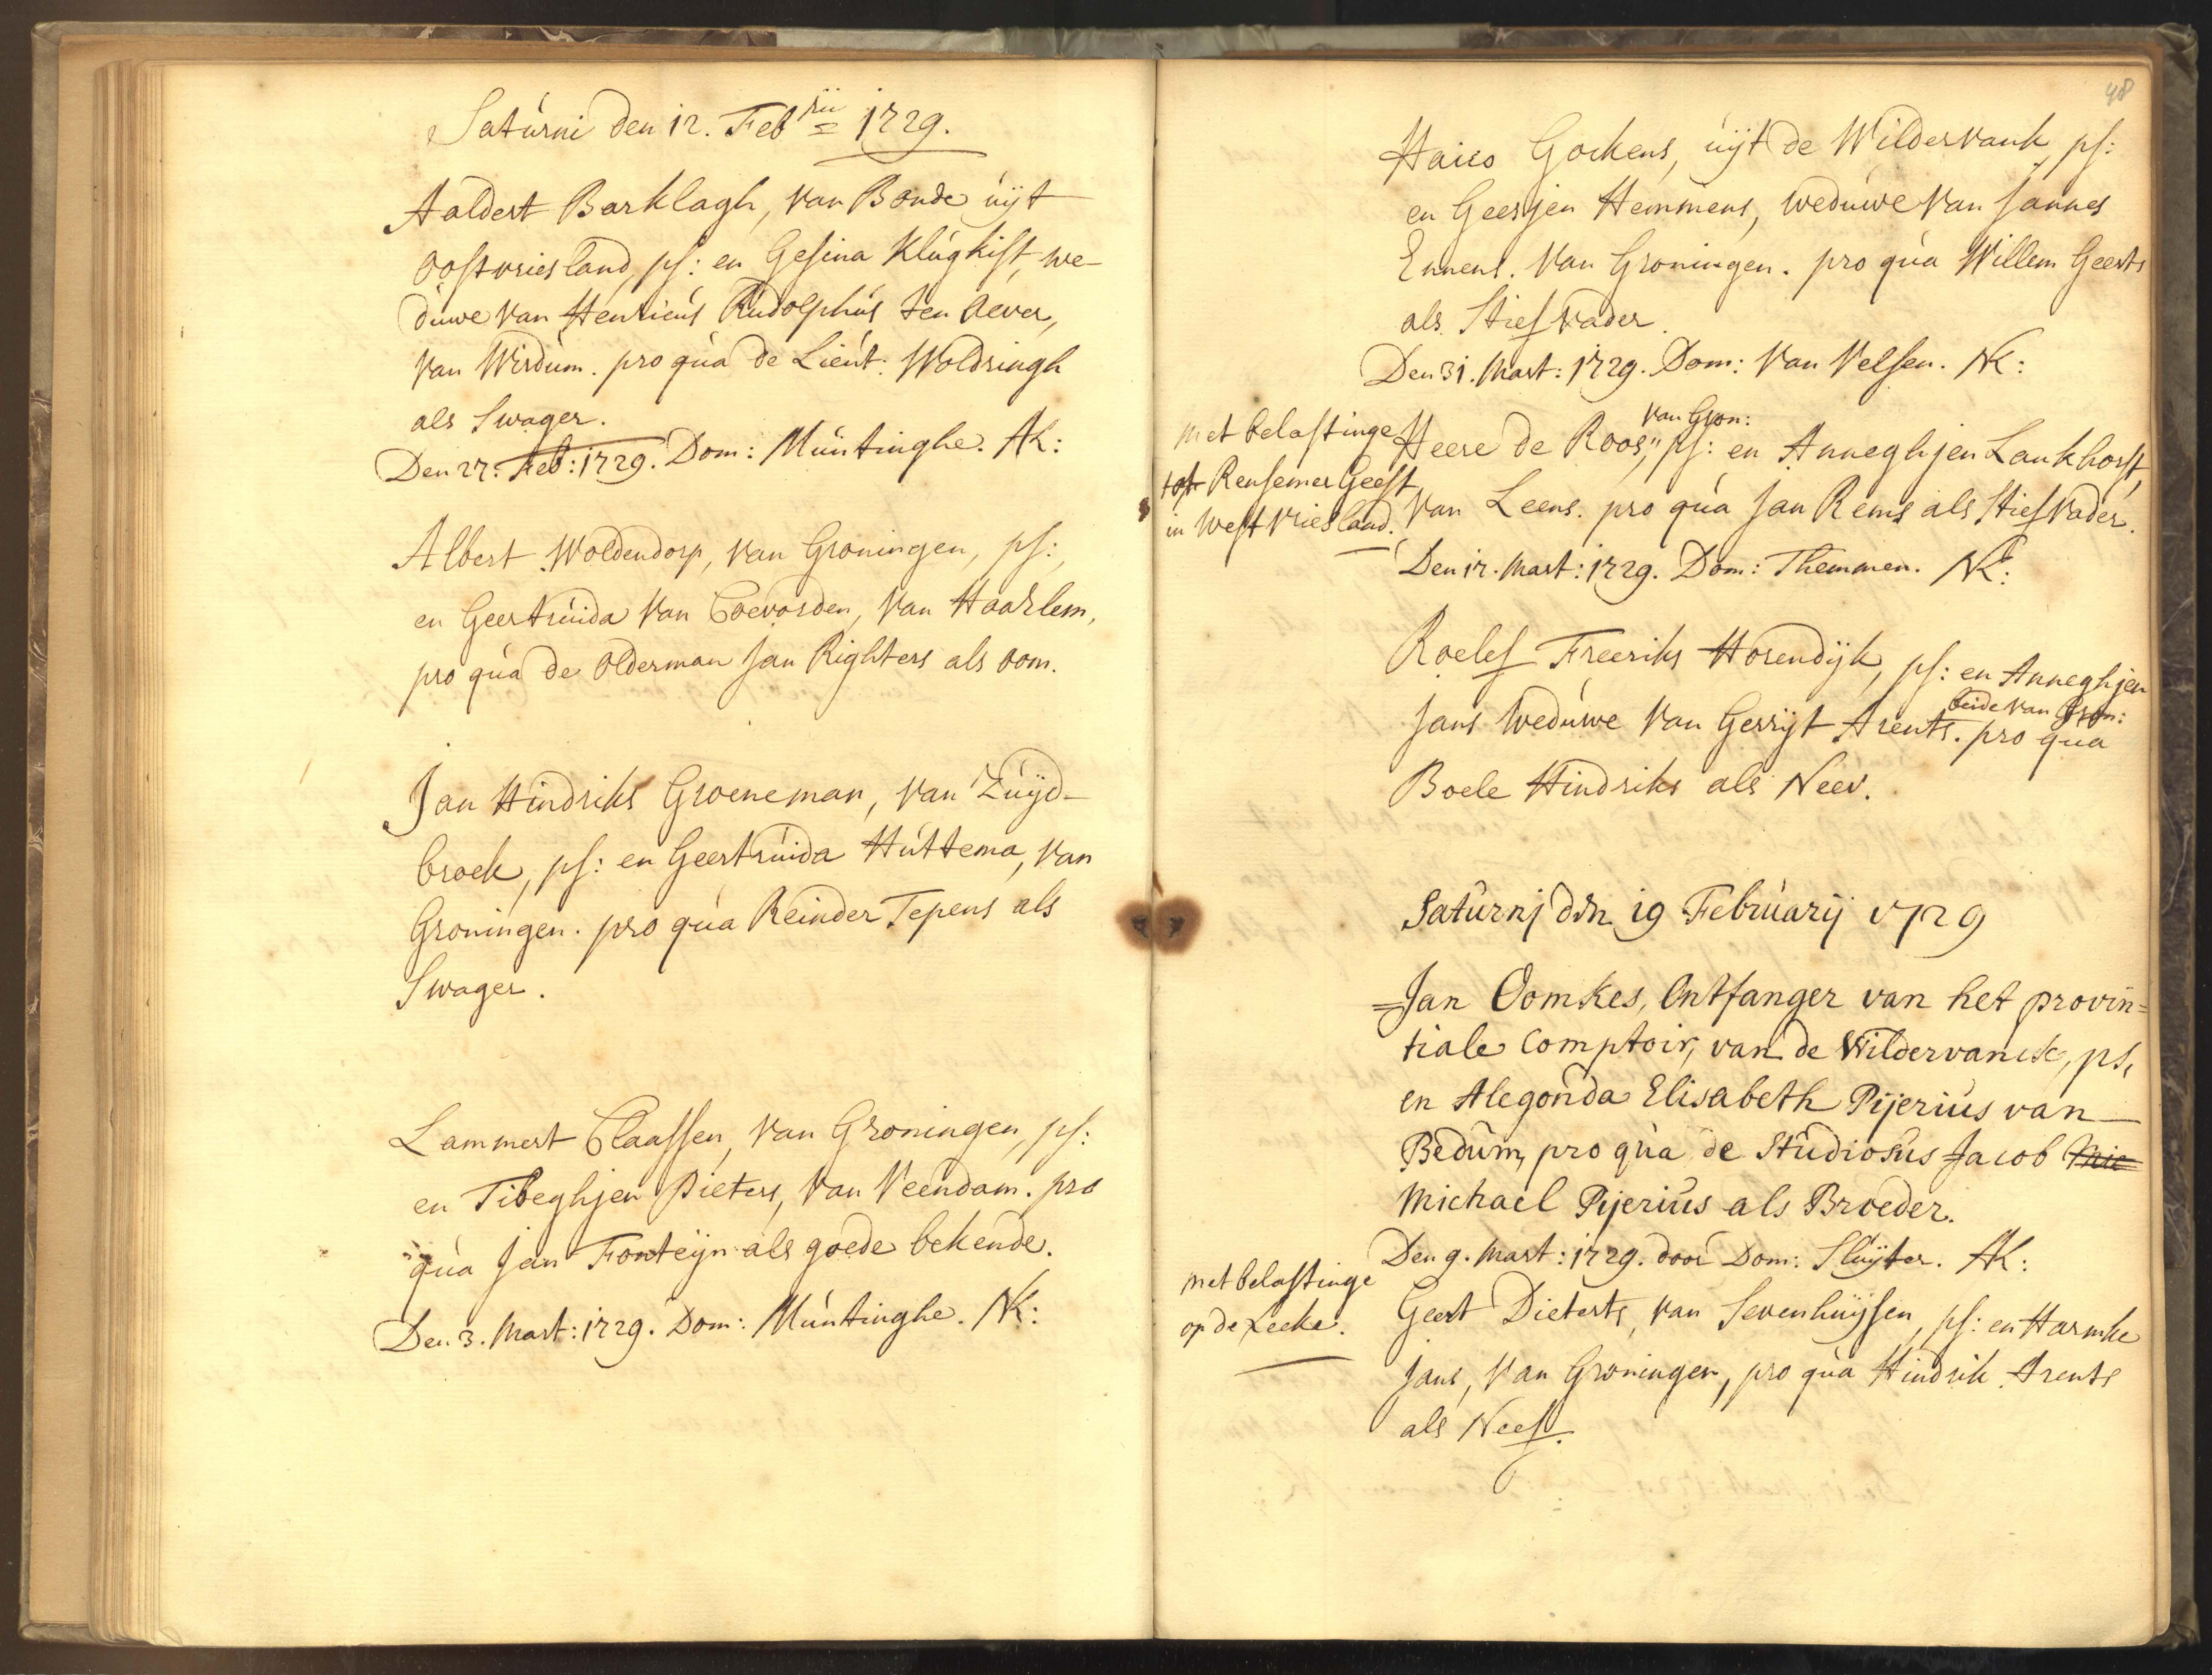 Saturni den 12. Feb rii 1729.
Aaldert Barklagh, van Bonde uijt
oostvriesland, ps: en Gesina Klugkist, we-
duwe van Henricus Rudolphus ten Oever,
van Wirdum. pro qua de Lieut: Woldringh
als Swager.
Den 27. Feb: 1729. Dom: Muntinghe. AK:
Albert Woldendorp, van Groningen, ps:,
en Geertruida van Coevorden, van Haarlem,
pro qua de olderman Jan Righters als oom.
Jan Hindriks Groeneman, van Zuijd-
broek, ps: en Geertruida Huttema, van
Groningen. pro qua Reinder Tepens als
Swager.
Lammert Claassen, van Groningen, ps:
en Tibeghjen Pieters, van Veendam. pro
qua Jan Fonteijn als goede bekende.
Den 3. Mart: 1729. Dom: Muntinghe. NK:
48
Haico Gockens, uijt de Wildervank, ps:
en Geesjen Hemmens, weduwe van Jannes
Ennens. van Groningen. pro qua Willem Geerts
als Stiefvader.
Den 31. Mart: 1729. Dom: van Velsen. NK:
met belastinge
tot Rensemer Geest
in West vriesland.
van Gron:
Heere de Roos, ps: en Anneghjen Lankhorst,
van Leens. pro qua Jan Rems als Stiefvader.
Den 17. Mart: 1729. Dom: Themmen. NK:
Roelef Freeriks Horendijk, ps: en Anneghjen
beide van Gron:
Jans weduwe van Gerrijt Arents. pro qua
Boele Hindriks als Neev.
Saturnj den 19 Februarij 1729
Jan Oomkes, Ontfanger van het provin=
tiale Comptoir, van de Wildervanck, ps,
en Alegonda Elisabeth Pijerius van
Bedum, pro qua de Studiosus Jacob Mic
Michael Pijerius als Broeder.
Den 9. Mart: 1729. door Dom: Sluijter. AK:
met belastinge
op de Leeke.
Geert Dieterts, van Sevenhuijsen, ps: en Harmke
Jans, van Groningen, pro qua Hindrik Arents
als Neef.